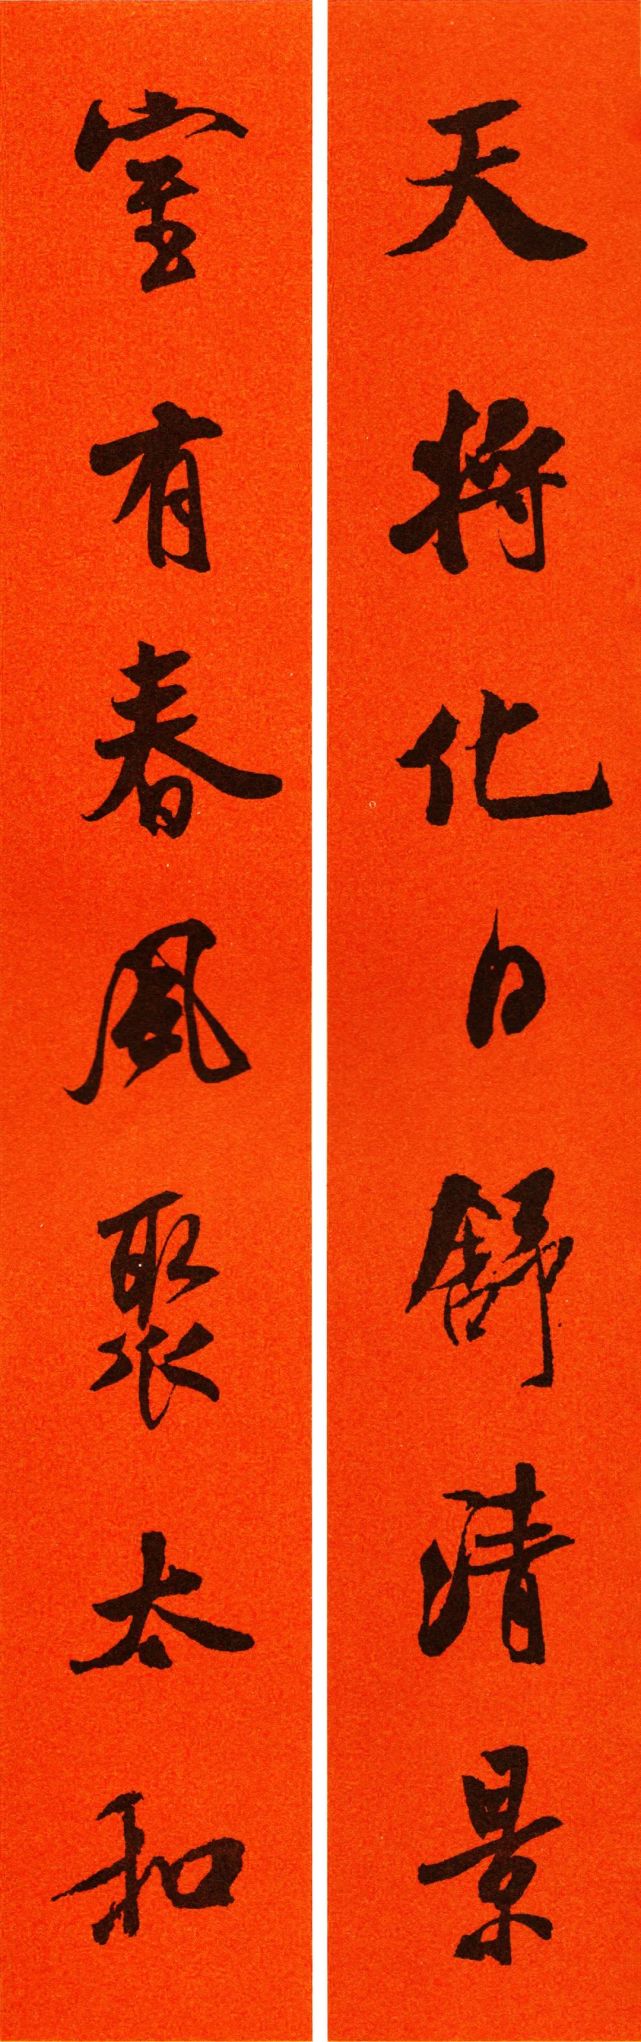 天将化日舒清景
室有春风聚太和